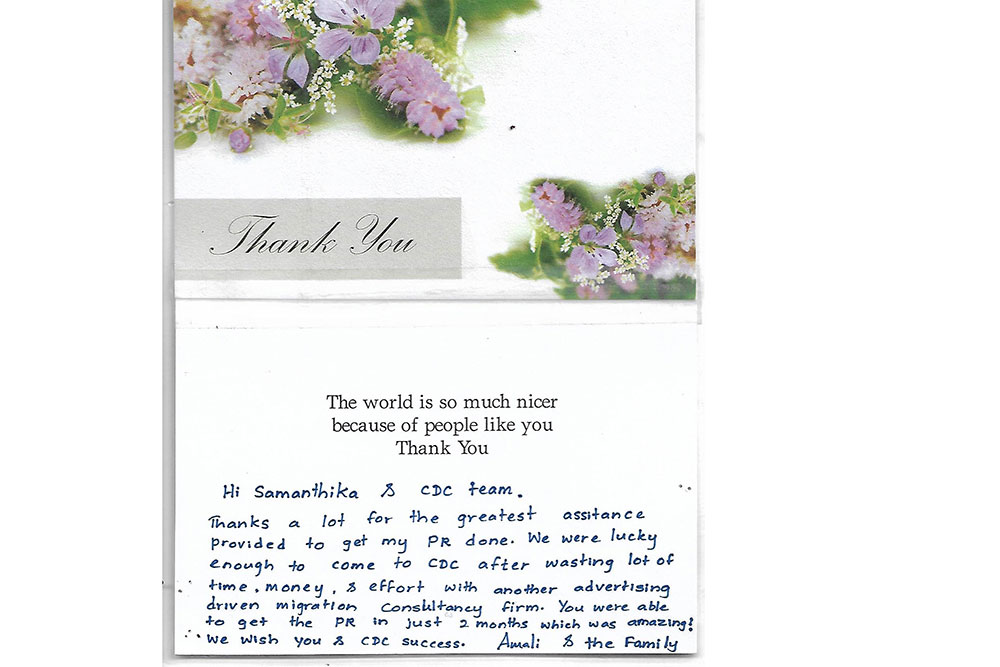 Thank You
The world is so much nicer
because of people like you
Thank You
Hi Samanthika & CDC team.
Thanks a lot for the greatest assitance
provided to get my PR done. We were lucky
enough to come to CDC after wasting lot of
time, money, & effort with another advertising
driven migration Consultancy firm. You were able
to get the PR in just 2 months which was amazing!
We wish you & CDC success. Amali & the Family